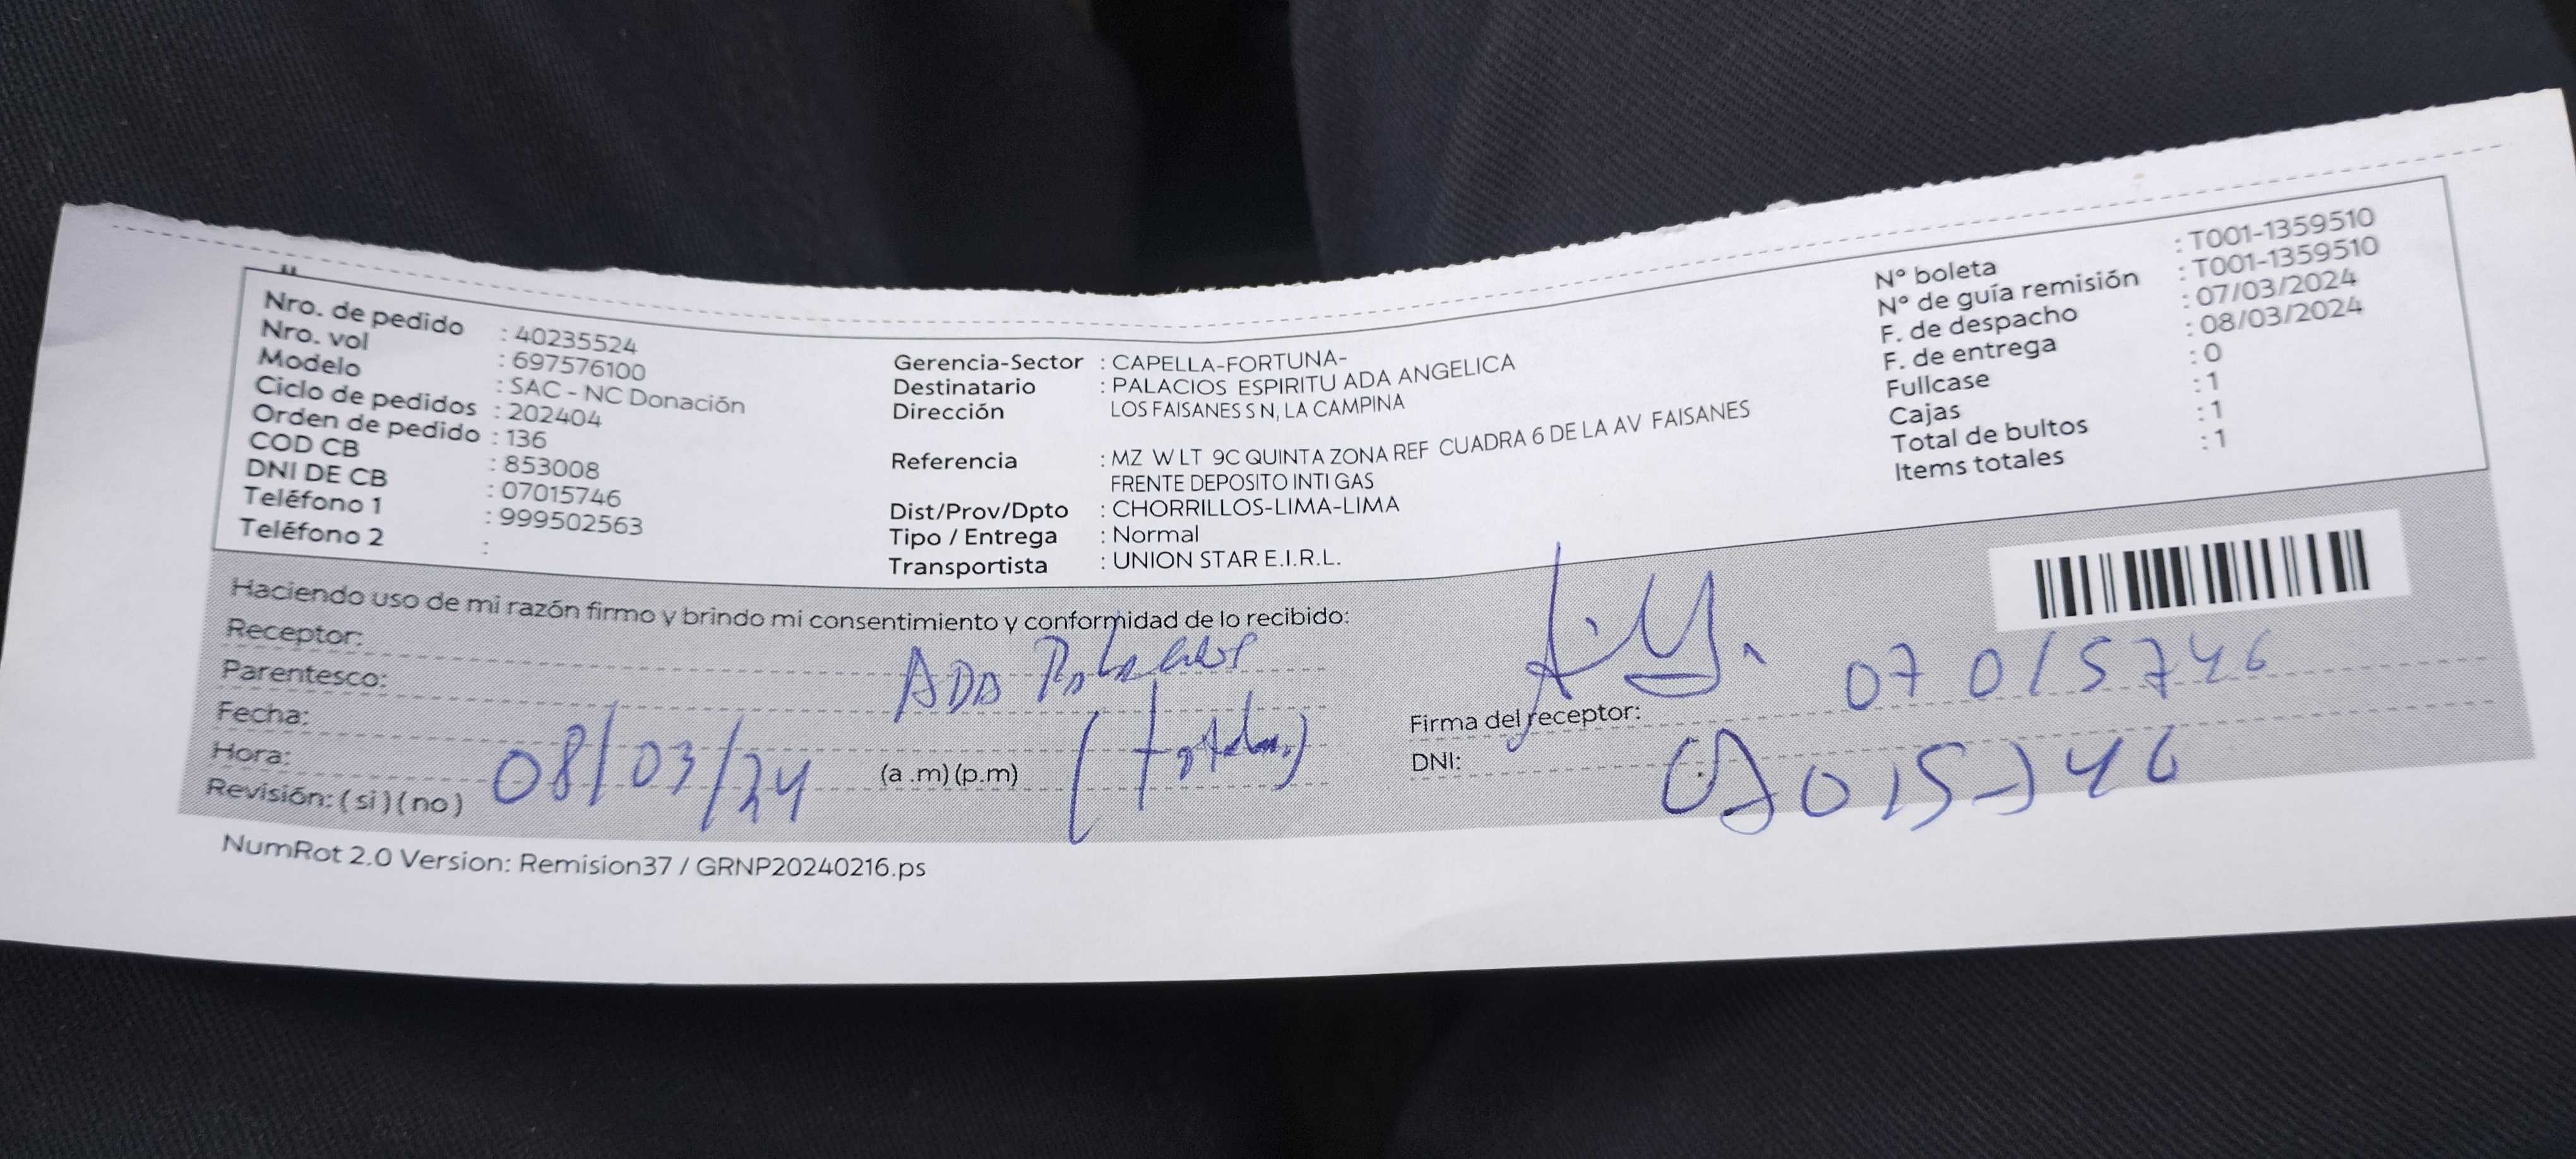 Nro. de pedido : 40235524
Nro. vol : 697576100
Modelo : SAC - NC Donación
Ciclo de pedidos : 202404
Orden de pedido : 136
COD CB : 853008
DNI DE CB : 07015746
Teléfono 1 : 999502563
Teléfono 2 :
Gerencia-Sector : CAPELLA-FORTUNA-
Destinatario : PALACIOS ESPIRITU ADA ANGELICA
Dirección LOS FAISANES S N, LA CAMPINA
Referencia : MZ W LT 9C QUINTA ZONA REF CUADRA 6 DE LA AV FAISANES
FRENTE DEPOSITO INTI GAS
Dist/Prov/Dpto : CHORRILLOS-LIMA-LIMA
Tipo / Entrega : Normal
Transportista : UNION STAR E.I.R.L.
N° boleta : T001-1359510
N° de guía remisión : T001-1359510
F. de despacho : 07/03/2024
F. de entrega : 08/03/2024
Fullcase : 0
Cajas : 1
Total de bultos : 1
Items totales : 1
Haciendo uso de mi razón firmo y brindo mi consentimiento y conformidad de lo recibido:
Receptor:
Parentesco: ADA Palacios
Fecha:
Hora: 08/03/24 (a .m) (p.m)
Revisión: ( si ) ( no )
07015746
Firma del receptor:
DNI: 07015746
NumRot 2.0 Version: Remision37 / GRNP20240216.ps